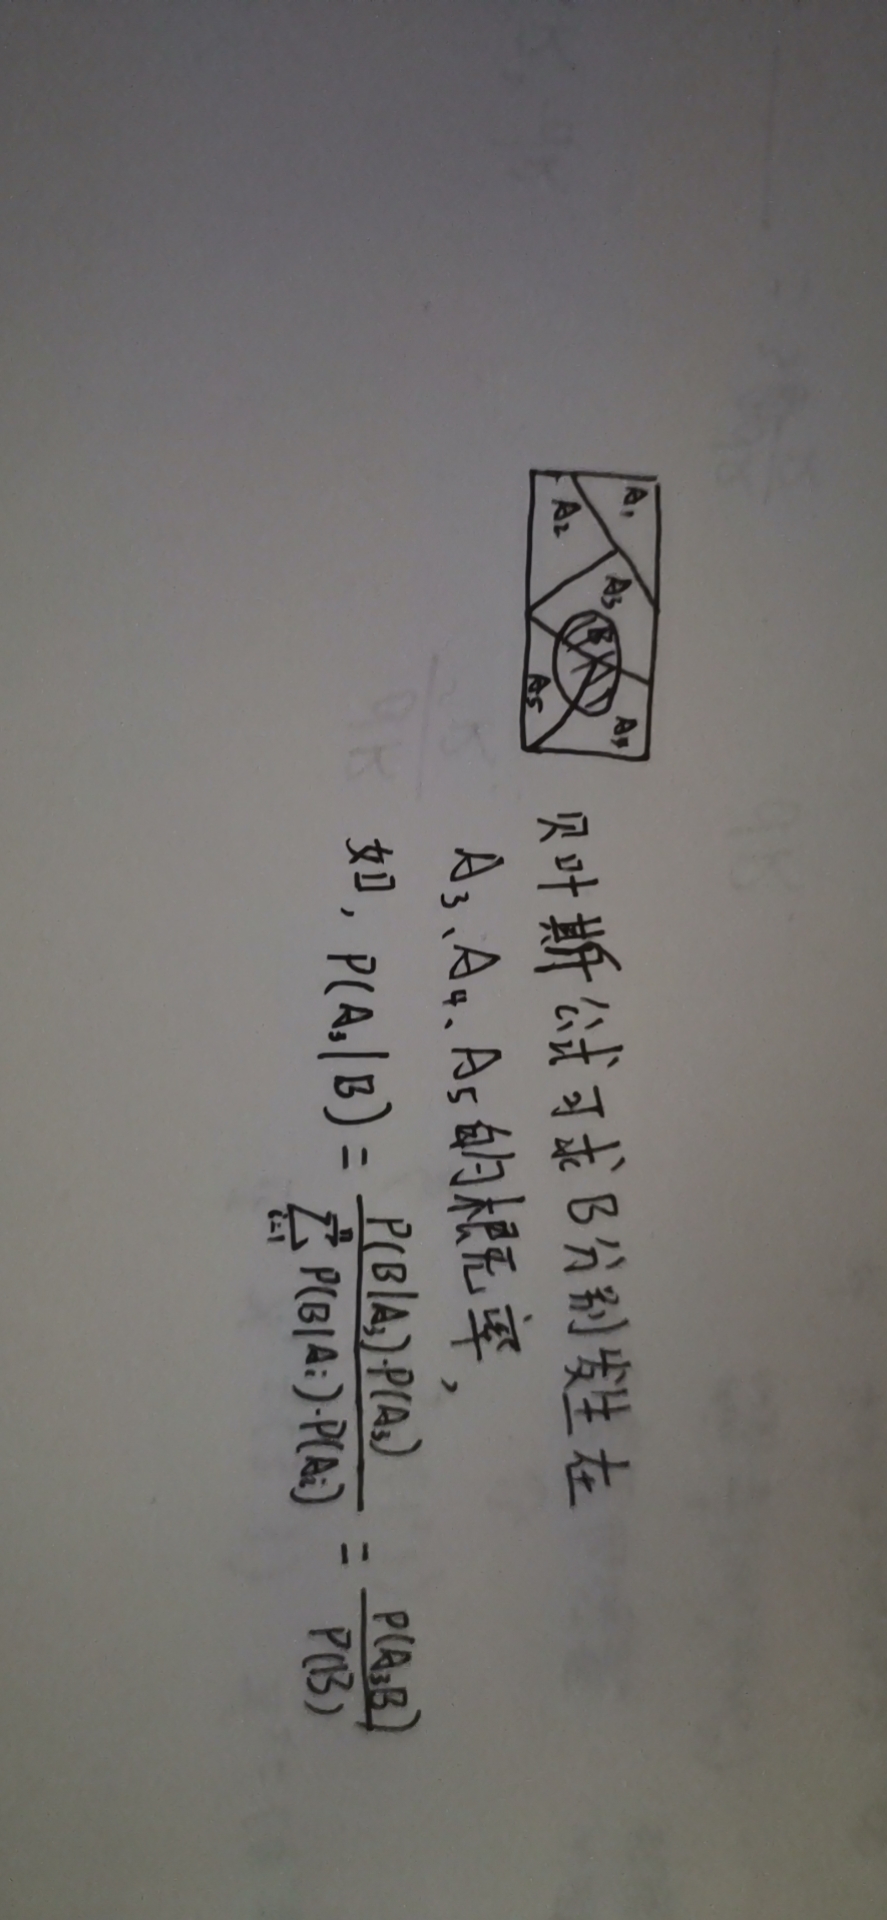 A₁
A₂
A₃
B
A₄
A₅
贝叶斯公式可求B分别发生在
A₃、A₄、A₅的概率,
如, P(A₃|B) = P(B|A₃)·P(A₃) / ∑ⁿᵢ₌₁ P(B|Aᵢ)·P(Aᵢ) = P(A₃B) / P(B)